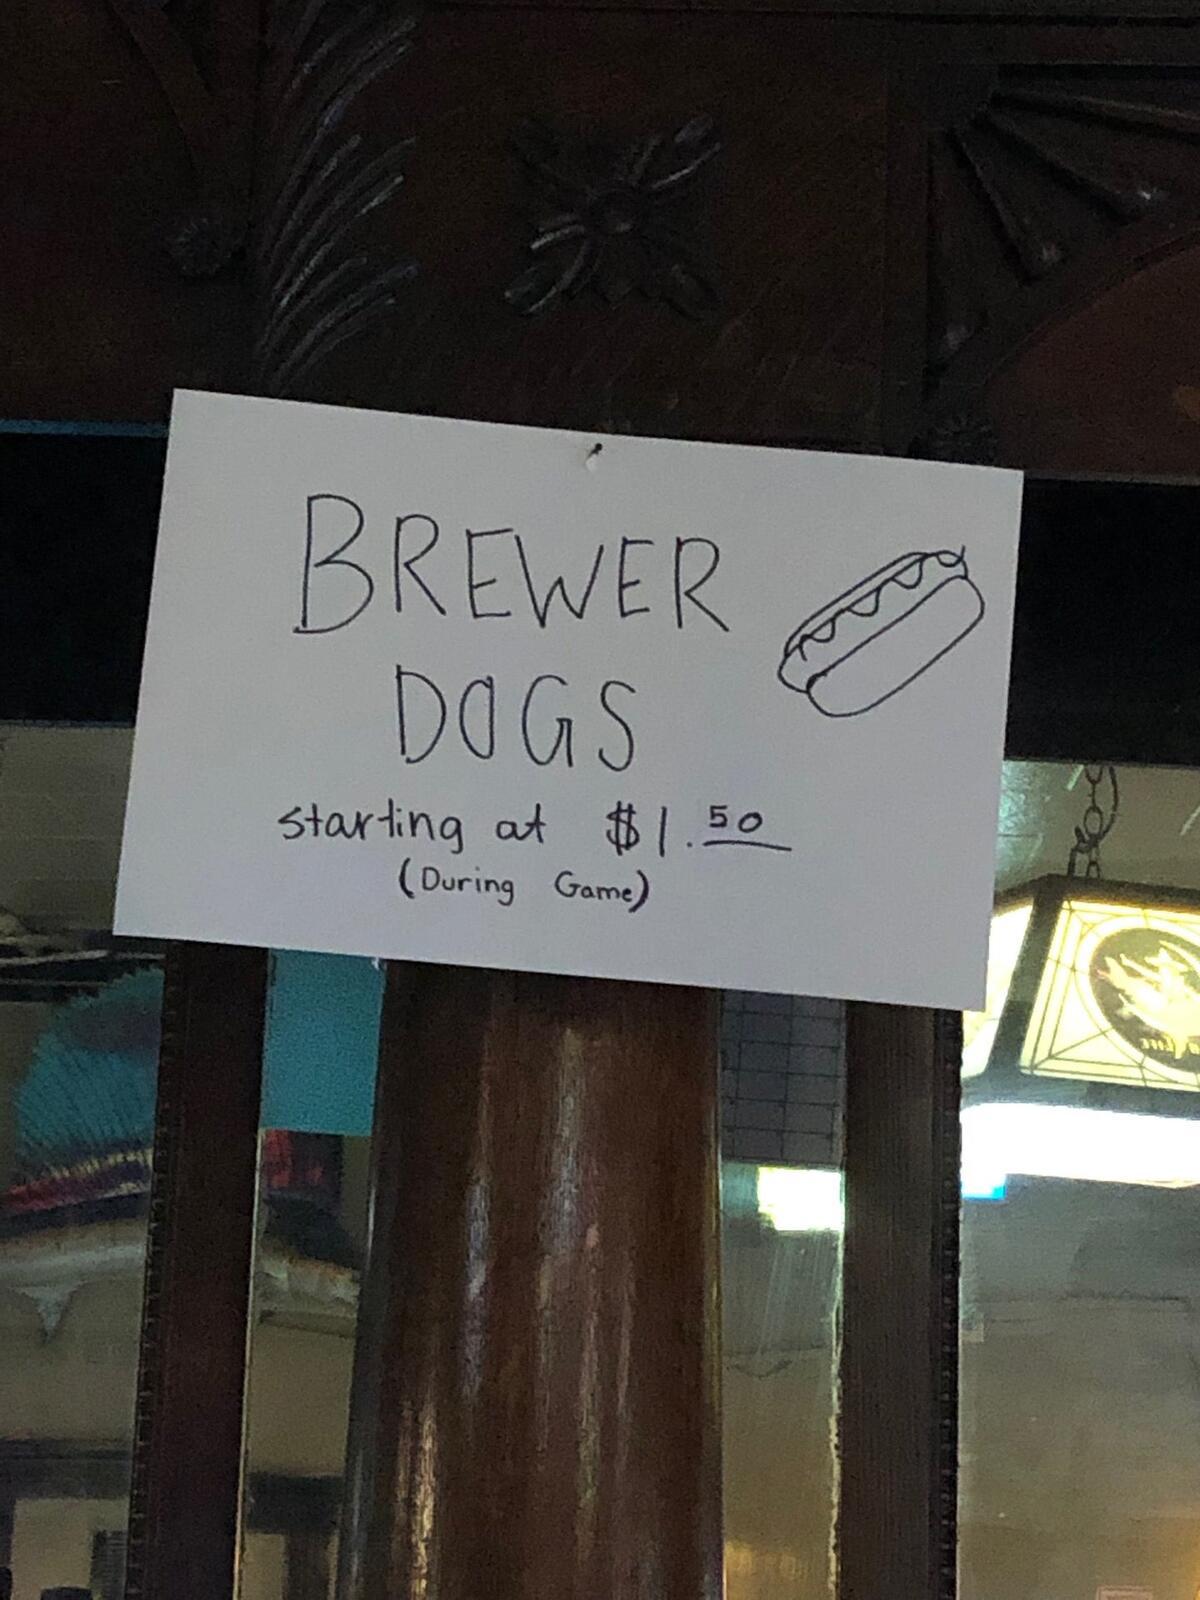 BREWER
DOGS
starting at $1.50
(During Game)